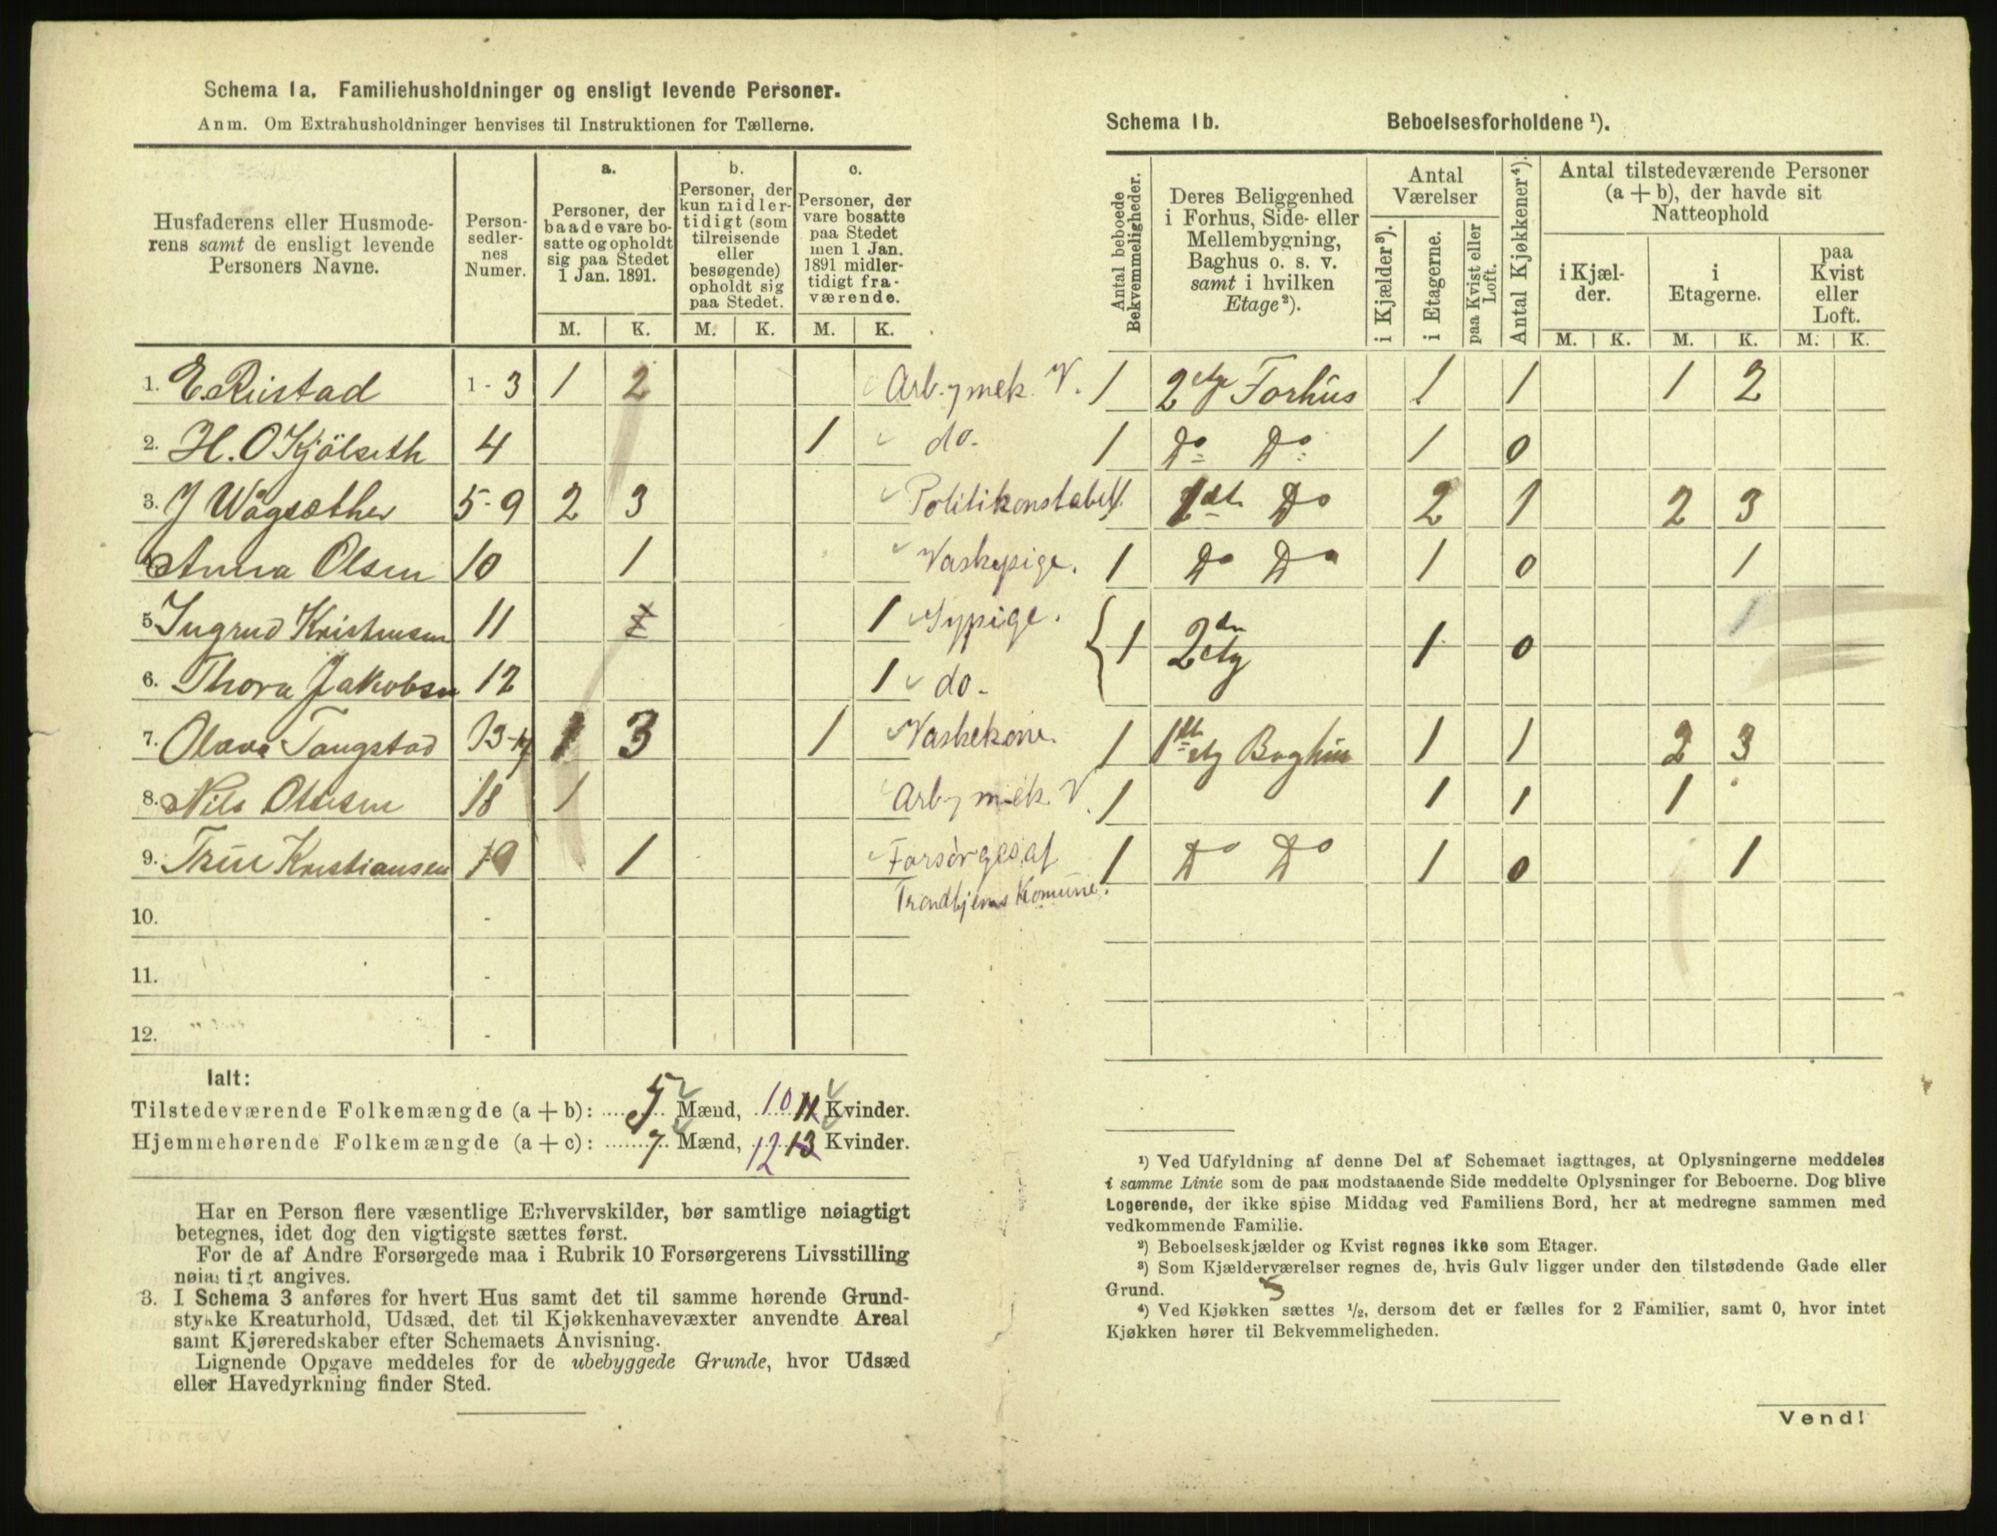 Schema 1a. Familiehusholdninger og ensligt levende Personer.
Anm. Om Extrahusholdninger henvises til Instruktionen for Tællerne.
Husfaderens eller Husmode-
rens samt de ensligt levende
Personers Navne.
Person-
sedler-
nes
Numer.
a.
Personer, der
baade vare bo-
satte og opholdt
sig paa Stedet
1 Jan. 1891.
b.
Personer, der
kun midler-
tidigt (som
tilreisende
eller
besøgende)
opholdt sig
paa Stedet.
c.
Personer, der
vare bosatte
paa Stedet
men 1 Jan.
1891 midler-
tidigt fra-
værende.
M. K. M. K. M. K.
1. E. Ristad 1-3 1 2 Arb. mek. V.
2. H. O Kjölseth 4 1 do.
3. J Wågsæther 5-9 2 3 Politikonstabel
Anna Olsen 10 1 Vaskepige.
5. Ingrid Kristensen 11 1 Sypige.
6. Thora Jakobsen 12 1 do.
7. Olava Tangstad 13-17 1 3 1 Vaskekone.
8. Nils Olsen 18 1 Arb. mek. V.
9. Trine Kristiansen 19 1 Forsörges af
Trondhjems Komune.
10. -
11. -
12. -
Ialt:
Tilstedeværende Folkemængde (a + b): 5 Mænd, 10 11 Kvinder.
Hjemmehørende Folkemængde (a + c): 7 Mænd, 12 13 Kvinder.
Har en Person flere væsentlige Erhvervskilder, bør samtlige nøiagtigt
betegnes, idet dog den vigtigste sættes først.
For de af Andre Forsørgede maa i Rubrik 10 Forsørgerens Livsstilling
nøiagtigt angives.
3. I Schema 3 anføres for hvert Hus samt det til samme hørende Grund-
stykke Kreaturhold, Udsæd, det til Kjøkkenhavevæxter anvendte Areal
samt Kjøreredskaber efter Schemaets Anvisning.
Lignende Opgave meddeles for de ubebyggede Grunde, hvor Udsæd
eller Havedyrkning finder Sted.
Schema 1b. Beboelsesforholdene ¹).
Antal beboede
Bekvemmeligheder.
Deres Beliggenhed
i Forhus, Side- eller
Mellembygning,
Baghus o. s. v.
samt i hvilken
Etage²).
Antal
Værelser
i Kjælder³).
i Etagerne.
paa Kvist eller
Loft.
Antal Kjøkkener⁴).
Antal tilstedeværende Personer
(a + b), der havde sit
Natteophold
i Kjæl-
der.
i
Etagerne.
paa
Kvist
eller
Loft.
M. K. M. K. M. K.
1 2 etg Forhus 1 1 1 2
1 Do Do 1 0
1 1ste Do 2 1 2 3
1 Do Do 1 0 1
1 2den etg 1 0
1 1ste etg Baghus 1 1 2 3
1 1 1 1
1 Do Do 1 0 1
¹) Ved Udfyldning af denne Del af Schemaet iagttages, at Oplysningerne meddeles
i samme Linie som de paa modstaaende Side meddelte Oplysninger for Beboerne. Dog blive
Logerende, der ikke spise Middag ved Familiens Bord, her at medregne sammen med
vedkommende Familie.
²) Beboelseskjælder og Kvist regnes ikke som Etager.
³) Som Kjælderværelser regnes de, hvis Gulv ligger under den tilstødende Gade eller
Grund.
⁴) Ved Kjøkken sættes ½, dersom det er fælles for 2 Familier, samt 0, hvor intet
Kjøkken hører til Bekvemmeligheden.
Vend!